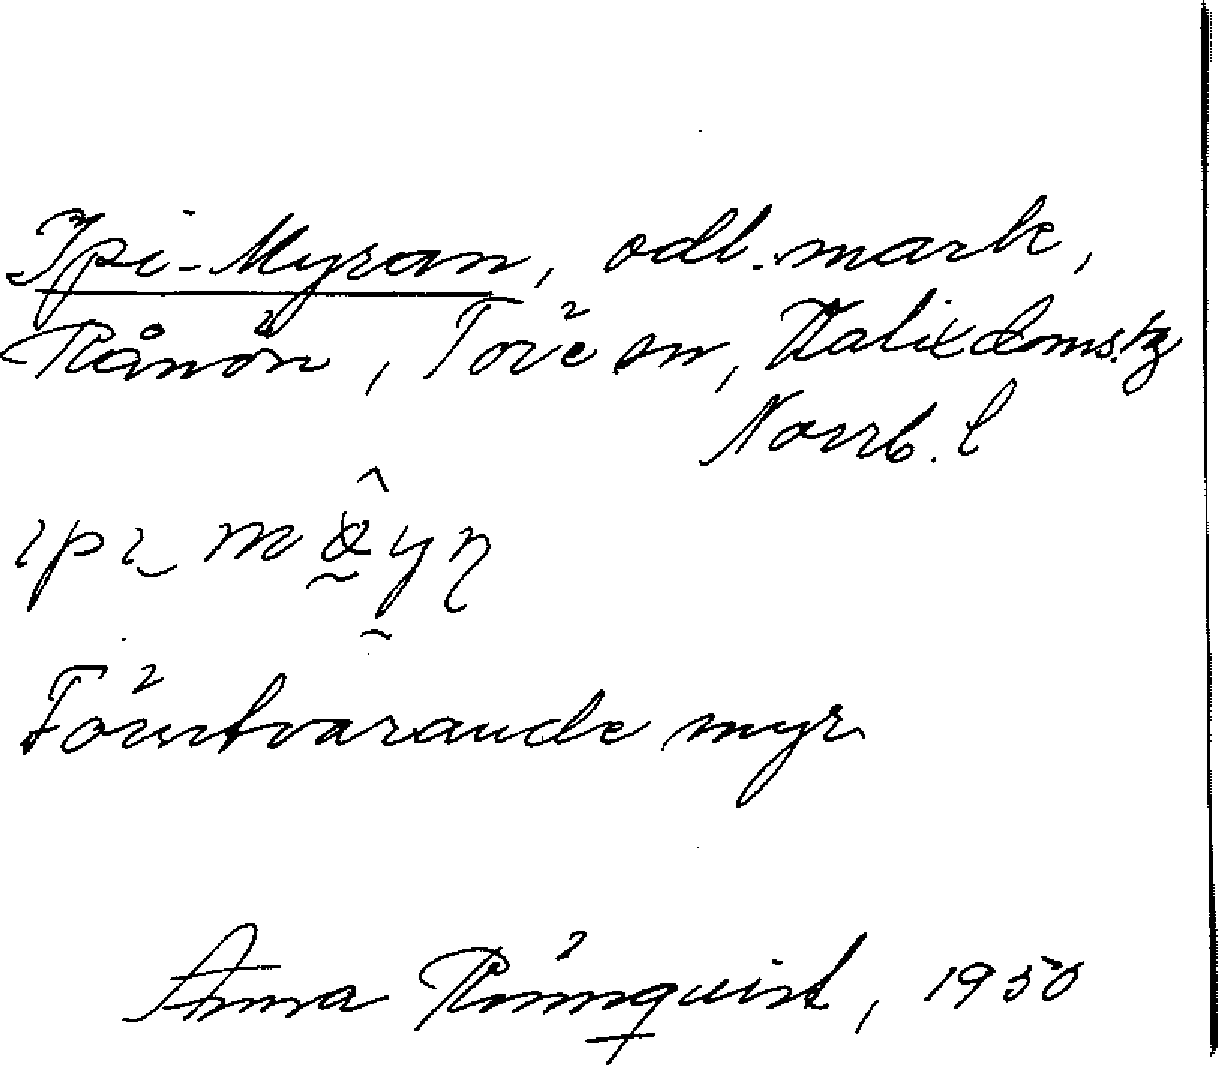 Ipi-Myran, odl. mark,
Rånön, Töre sn, Kalix doms.
Norrb. l
Förutvarande myr.
Anna Rönnqvist, 1950